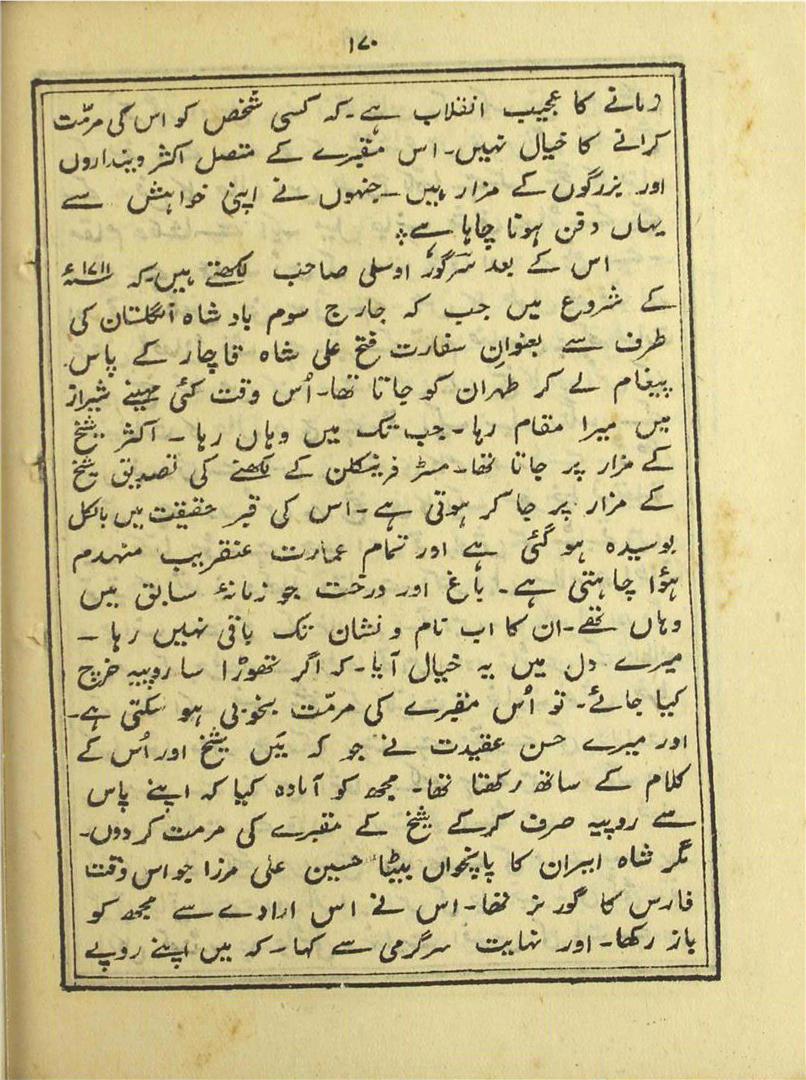 ۱۷۰
زمانے کا عجیب انقلاب ہے۔ کہ کسی شخص کو اس کی مرمّت
کرانے کا خیال نہیں۔ اس مقبرے کے متصل اکثر دینداروں
اور بزرگوں کے مزار ہیں۔ جنہوں نے اپنی خواہش سے
یہاں دفن ہونا چاہا ہے؞
اس کے بعد سرگور اوسلی صاحب لکھتے ہیں۔ کہ ۱۷۱۱ء
کے شروع میں جب کہ جارج سوم بادشاہ انگلستان کی
طرف سے بعنوانِ سفارت فتح علی شاہ قاچار کے پاس
پیغام لے کر طہران کو جاتا تھا۔ اُس وقت کئی مہینے شیراز
میں میرا مقام رہا۔ جب تک میں وہاں رہا۔ اکثر شیخ
کے مزار پر جاتا تھا۔ مسٹر فرینکلن کے لکھنے کی تصدیق شیخ
کے مزار پر جا کر ہوتی ہے۔ اس کی قبر حقیقت میں بالکل
بوسیدہ ہو گئی ہے اور تمام عمارت عنقریب منہدم
ہؤا چاہتی ہے۔ باغ اور درخت جو زمانۂ سابق میں
وہاں تھے۔ ان کا اب نام و نشان تک باقی نہیں رہا۔
میرے دل میں یہ خیال آیا۔ کہ اگر تھوڑا سا روپیہ خرچ
کیا جائے۔ تو اُس مقبرے کی مرمّت بخوبی ہو سکتی ہے۔
اور میرے حسن عقیدت نے جو کہ مَیں شیخ اور اُس کے
کلام کے ساتھ رکھتا تھا۔ مجھ کو آمادہ کیا کہ اپنے پاس
سے روپیہ صرف کرکے شیخ کے مقبرے کی مرمت کر دوں۔
مگر شاہ ایران کا پانچواں بیٹا حسین علی مرزا جو اس وقت
فارس کا گورنر تھا۔ اس نے اس ارادے سے مجھ کو
باز رکھا۔ اور نہایت سرگرمی سے کہا۔ کہ میں اپنے روپے